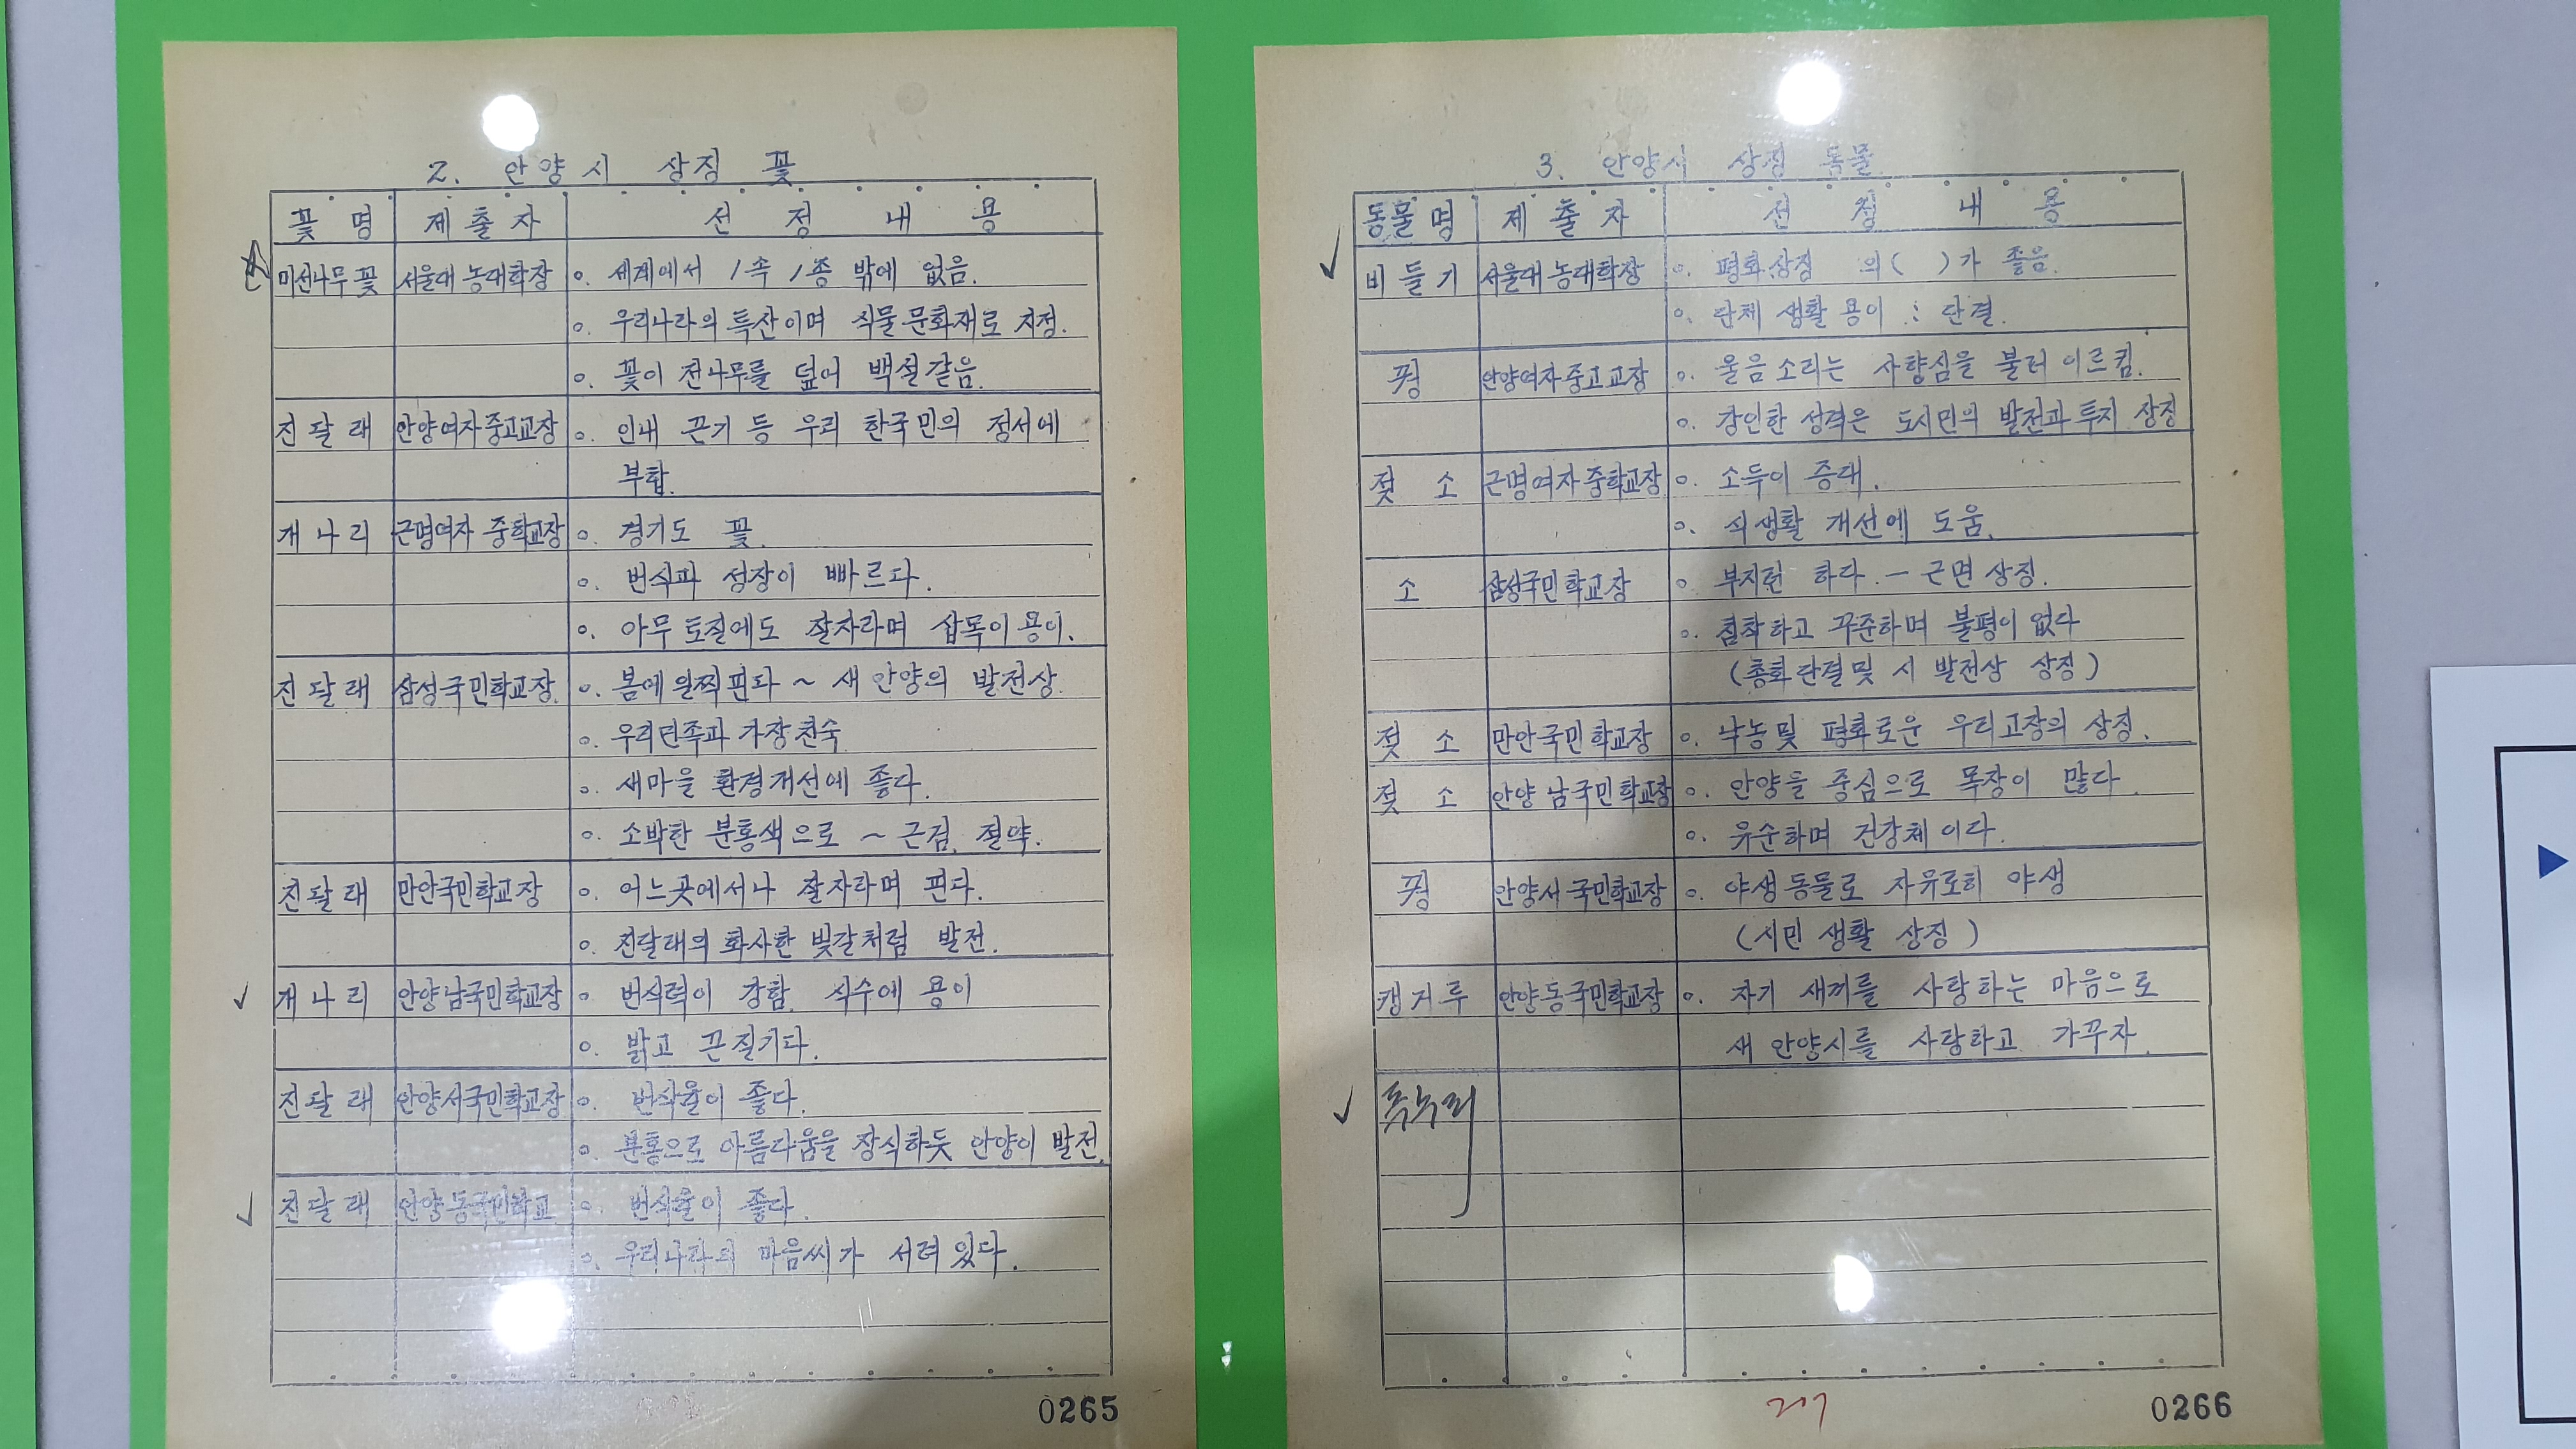 2. 안양시 상징 꽃
꽃명 제출자 선정내용
미선나무꽃 서울대 농대학장 o. 세계에서 1속 1종 밖에 없음.
o. 우리나라의 특산이며 식물문화재로 지정.
o. 꽃이 전나무를 덮어 백설같음.
진달래 안양여자중고교장 o. 인내 끈기 등 우리 한국민의 정서에
부합.
개나리 근명여자 중학교장 o. 경기도 꽃.
o. 번식과 성장이 빠르다.
o. 아무 토질에도 잘자라며 삽목이 용이.
진달래 삼성국민학교장. o. 봄에 일찍핀다 ~ 새 안양의 발전상.
o. 우리민족과 가장친숙
o. 새마을 환경개선에 좋다.
o. 소박한 분홍색으로 ~ 근검. 절약.
진달래 만안국민학교장 o. 어느곳에서나 잘자라며 핀다.
o. 진달래의 화사한 빛갈처럼 발전.
개나리 안양남국민학교장 o. 번식력이 강함. 식수에 용이
o. 밝고 끈질기다.
진달래 안양서국민학교장 o. 번식율이 좋다.
o. 분홍으로 아름다움을 장식하듯 안양이 발전.
진달래 안양동국민학교 o. 번식율이 좋다.
o. 우리나라의 마음씨가 서려있다.
0265
3. 안양시 상징 동물
동물명 제출자 선정내용
비둘기 서울대 농대학장 o. 평화상징 의( )가 좋음.
o. 단체 생활 용이 : 단결.
꿩 안양여자중고교장 o. 울음소리는 사향심을 불러 이르킴.
o. 강인한 성격은 도시민의 발전과 투지 상징
젖소 근명여자중학교장 o. 소득이 증대.
o. 식생활 개선에 도움.
소 삼성국민학교장 o. 부지런 하다. - 근면상징.
o. 침착하고 꾸준하며 불평이 없다
(총화단결및 시 발전상 상징)
젖소 만안국민학교장 o. 낙농및 평화로운 우리고장의 상징.
젖소 안양남국민학교장 o. 안양을 중심으로 목장이 많다.
o. 유순하며 건강체이다.
꿩 안양서국민학교장 o. 야생동물로 자유로히 야생
(시민 생활 상징)
캥거루 안양동국민학교장 o. 자기 새끼를 사랑하는 마음으로
새 안양시를 사랑하고 가꾸자.
독수리
0266